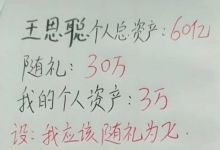 王思聪个人总资产:60亿
随礼:30万
我的个人资产:3万
设:我应该随礼为x.